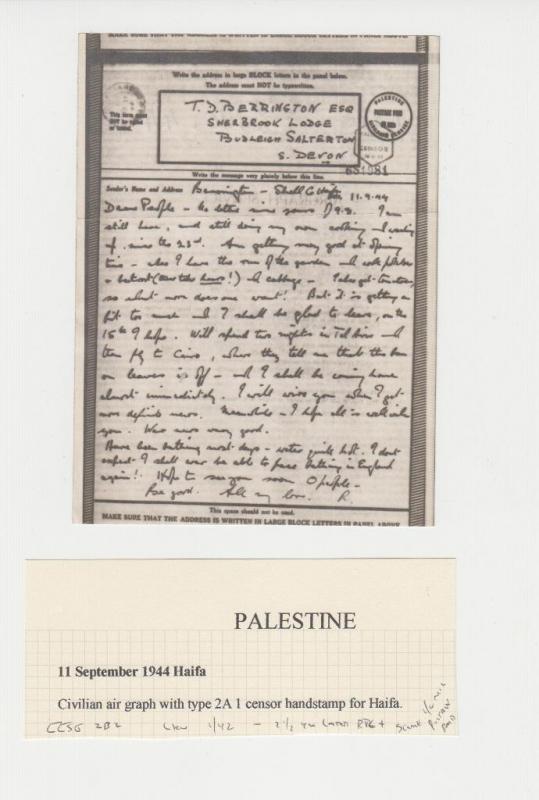 Write the address in large BLOCK letters in the panel below.
The address must NOT be typewritten.
This form must
NOT be folded
T.D. BERRINGTON ESQ
SHERBROOK LODGE
BUDLEIGH SALTERTON
S. DEVON
PALESTINE
POSTAGE PAID
CENSOR
Write the message very plainly below this line.
Sender's Name and Address Berrington - Shell Co Haifa 11.9.44
Dear People - No letter since yours of 9.8. I am
still here, and still doing my own cooking and washing
up since the 23rd. Am getting very good at opening
tins - also I have the run of the garden
(two take hours!) & cabbage - I also got tomatoes,
so what more does one want! But it is getting a
bit too much and I shall be glad to leave, on the
15th I hope. Will spend two nights in Tel Aviv and
then fly to Cairo, where they tell me that the ban
on leaves is off - and I shall be coming home
almost immediately. I will wire you when I get
more definite news. Meanwhile - I hope all is well with
you. War news very good.
Have been bathing most days - water quite hot. I don't
expect I shall ever be able to face bathing in England
again!! Hope to see you soon O people -
Be good. All my love. R.
This space should not be used.
MAKE SURE THAT THE ADDRESS IS WRITTEN IN LARGE BLOCK LETTERS IN PANEL ABOVE
PALESTINE
11 September 1944 Haifa
Civilian air graph with type 2A 1 censor handstamp for Haifa.